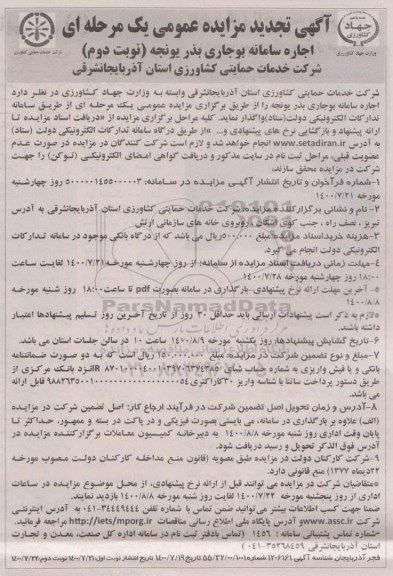 آگهی تجدید مزایده عمومی یک مرحله ای
اجاره سامانه بوجاری بذر یونجه (نوبت دوم)
شرکت خدمات حمایتی کشاورزی استان آذربایجانشرقی
جهاد کشاورزی
وزارت جهاد کشاورزی
شرکت خدمات حمایتی کشاورزی
شرکت خدمات حمایتی کشاورزی استان آذربایجانشرقی وابسته به وزارت جهاد کشاورزی در نظر دارد
اجاره سامانه بوجاری بذر یونجه را از طریق برگزاری مزایده عمومی یک مرحله ای از طریق سامانه
تدارکات الکترونیکی دولت(ستاد)واگذار نماید. کلیه مراحل برگزاری مزایده از «دریافت اسناد مزایده تا
ارائه پیشنهاد و بازگشایی نرخ های پیشنهادی و... »از طریق درگاه سامانه تدارکات الکترونیکی دولت (ستاد)
به آدرس www.setadiran.ir انجام خواهد شد و لازم است شرکت کنندگان در مزایده در صورت عدم
عضویت قبلی، مراحل ثبت نام در سایت مذکور و دریافت گواهی امضای الکترونیکی (توکن) را جهت
شرکت در مزایده محقق سازند.
۱-شماره فراخوان و تاریخ انتشار آگهی مزایده در سامانه: روز چهارشنبه
مورخه ۱۴۰۰/۷/۲۱
۲- نام و نشانی برگزارکننده مزایده:شرکت خدمات حمایتی کشاورزی استان آذربایجانشرقی به آدرس
تبریز ، نصف راه ، جنب کوی ، روبروی خانه های سازمانی ارتش
۳-هزینه خرید اسناد مزایده:مبلغ ۵۰۰.۰۰۰ریال می باشد که از درگاه بانکی موجود در سامانه تدارکات
الکترونیکی دولت انجام می گیرد.
۴-مهلت زمانی دریافت اسناد مزایده از سامانه: از روز چهارشنبه مورخه ۱۴۰۰/۷/۲۱ لغایت ساعت
۱۸:۰۰ روز چهارشنبه مورخه ۱۴۰۰/۷/۲۸
۵- آخرین مهلت ارائه نرخ پیشنهادی -بارگذاری در سامانه بصورت pdf تا ساعت۱۸:۰۰ روز شنبه مورخه
۱۴۰۰/۸/۸
«لازم به ذکر است پیشنهادات ارسالی باید حداقل ۳۰ روز از تاریخ آخرین روز تسلیم پیشنهادها اعتبار
داشته باشد.
۶-تاریخ گشایش پیشنهادها: روز یکشنبه مورخه ۱۴۰۰/۸/۹ ساعت ۱۰ در سالن جلسات استان می باشد.
۷-مبلغ و نوع تضمین شرکت در مزایده: مبلغ ۱۵۰.۰۰۰.۰۰۰ ریال است که به دو صورت ضمانتنامه
بانکی و یا فیش واریزی به شماره حساب شبای نزد بانک مرکزی از
طریق دستور پرداخت ساتنا با شناسه واریز ۳۰کاراکتری قابل ارائه
می باشد.
۸-آدرس و زمان تحویل اصل تضمین شرکت در فرآیند ارجاع کار: اصل تضمین شرکت در مزایده
(الف) علاوه بر بارگذاری در سامانه، می بایستی بصورت فیزیکی و در پاکت در بسته و ممهور، حداکثر تا
پایان وقت اداری روز شنبه مورخه ۱۴۰۰/۸/۸ به دبیرخانه کمیسیون معاملات برگزارکننده مزایده در
آدرس فوق الذکر تحویل و رسید دریافت شود.
۹-شرکت کارکنان دولت در مزایده طبق مصوبه (قانون منع مداخله کارکنان دولت مصوب مورخه
۲۲دیماه ۱۳۷۷) منع قانونی دارد.
«متقاضیان شرکت در مزایده می توانند قبل از ارائه نرخ پیشنهادی، از محل موضوع مزایده در ساعات
اداری از روز پنجشنبه مورخه ۱۴۰۰/۷/۲۲ لغایت روز شنبه مورخه ۱۴۰۰/۸/۸ بازدید نمایند.
ضمنا جهت کسب اطلاعات بیشتر می توانید ضمن تماس با شماره تلفن ۳۴۴۴۹۴۴۴-۰۴۱ به آدرس اینترنتی
شرکت www.assc.ir و آدرس پایگاه ملی اطلاع رسانی مناقصات http://iets/mporg.ir مراجعه فرمائید.
-شماره تماس پشتیبانی سامانه : ۱۴۵۶ (تماس بادفتر ثبت نام در سامانه اداره کل صنعت، معدن و تجارت
استان آذربایجانشرقی ۳۵۲۶۸۴۵۹-۰۴۱)
فجر آذربایجان شناسه آگهی ۱۲۰۶۱۶۱ تاریخ انتشار نوبت اول:۱۴۰۰/۷/۲۱ نوبت دوم:۱۴۰۰/۷/۲۲
ParsNamadData